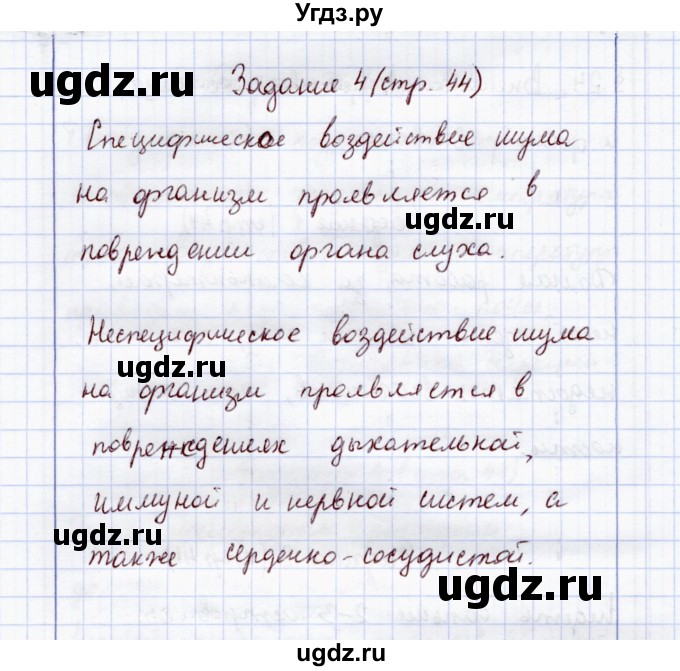 Угдз.ру
ugdz.ru
Задание 4 (стр. 44)
Специфическое воздействие шума
на организм проявляется в
ugdz.ru
повреждении органа слуха.
Неспецифическое воздействие шума
ugdz.ru
на организм проявляется в
повреждениях дыхательной,
иммуной и нервной систем, а
ugdz.ru
также сердечно-сосудистой.
ugdz.ru
ugdz.ru